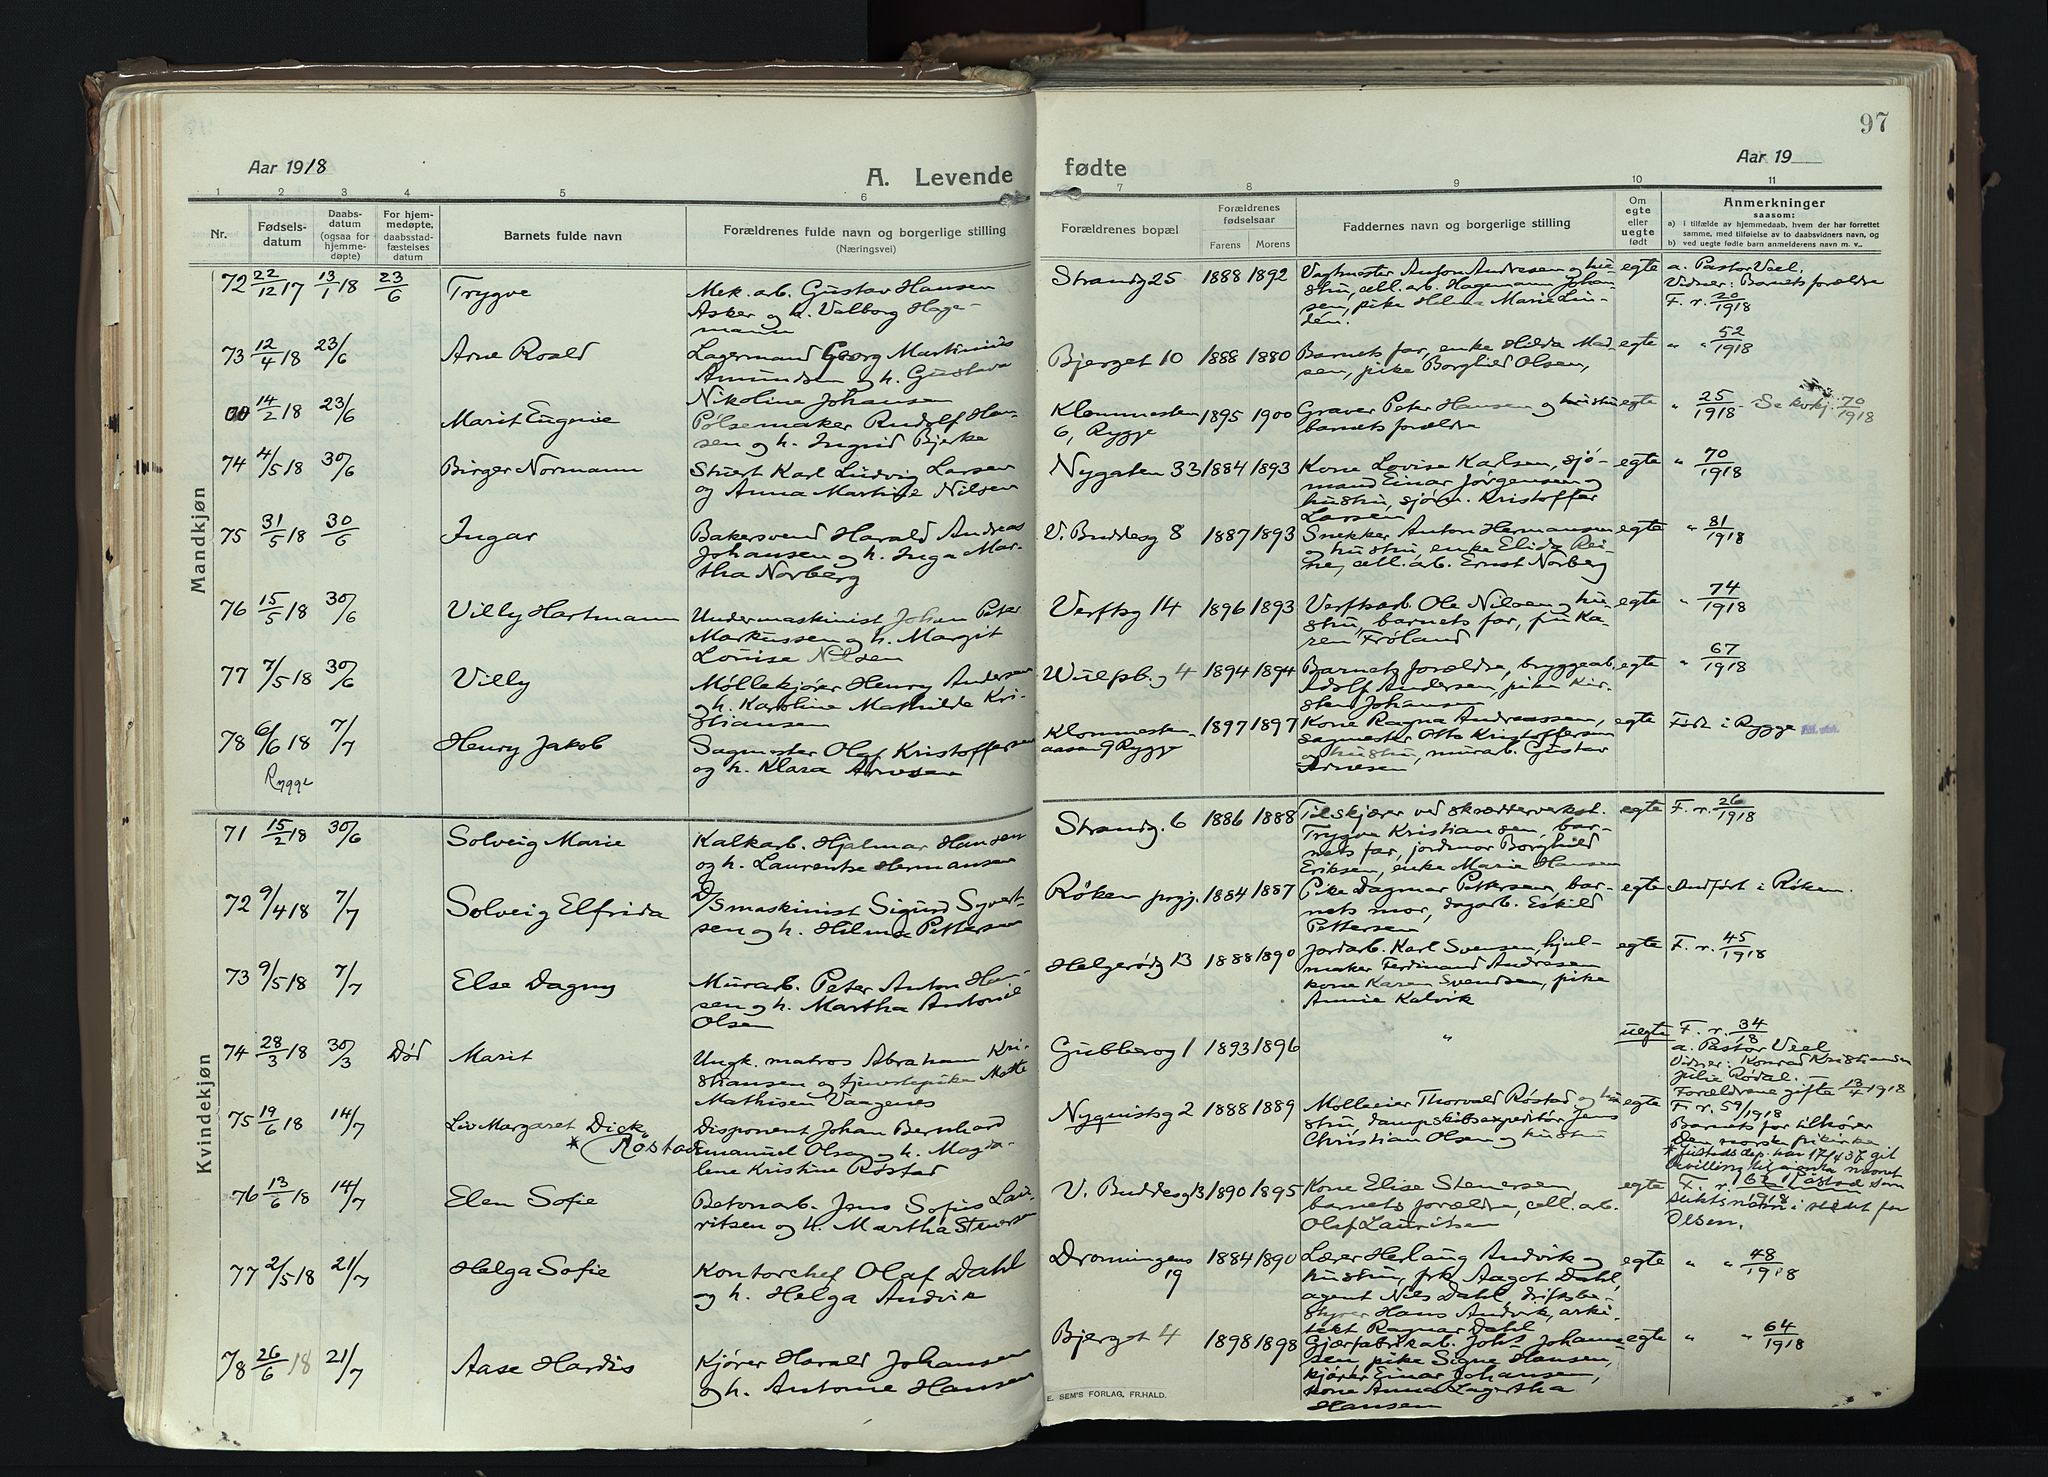 97
Aar 1918
A. Levende
fødte
Aar 19
1 2 3 4 5 6 7 8 9 10 11
Nr.
Fødsels-
datum
Daabs-
datum
(ogsaa for
hjemme-
døpte)
For hjem-
medøpte,
daabsstad-
fæstelses
datum
Barnets fulde navn
Forældrenes fulde navn og borgerlige stilling
(Næringsvei)
Forældrenes bopæl
Forældrenes
fødselsaar
Farens Morens
Faddernes navn og borgerlige stilling
Om
egte
eller
uegte
født
Anmerkninger
saasom:
a) i tilfælde av hjemmedaab, hvem der har forrettet
samme, med tilføielse av to daabsvidners navn, og
b) ved uegte fødte barn anmelderens navn m. v..
Mandkjøn
72 22/12 17 13/1 18 23/6 Trygve
Mek. arb. Gustav Hansen
Asker og h. Valborg Hage-
mann
Strandg 25 1888 1892
Vagtmester Anton Andresen og hu-
stru, cell. arb. Hagemann Johan-
sen, pike Helma Marie Lin-
dén.
egte
a. Pastor Veel.
Vidner: Barnets forældre
F. r. 20/1918
73 12/4 18 23/6 Arne Roald
Lagermand Georg Martinius
Amundsen og h. Gustava
Nikoline Johansen
Bjerget 10 1888 1880
Barnets far, enke Hilda Mad-
sen, pike Borghild Olsen,
egte " " 52/1918
14/2 18 23/6 Marit Eugenie
Pølsemaker Rudolf Han-
sen og h. Ingrid Bjerke
Klommesten
6, Rygge
1895 1900
Graver Peter Hansen og hustru
barnets forældre
egte " 25/1918 - Se kvkj. 70/1918
74 4/5 18 30/6 Birger Normann
Stuert Karl Ludvig Larsen
og Anna Martine Nilsen
Nygaten 33 1884 1893
Kone Lovise Karlsen, sjø-
mand Einar Jørgensen og
hustru, sjøm. Kristoffer
Larsen
egte " 70/1918
75 31/5 18 30/6 Ingar
Bakersvend Harald Andreas
Johansen og h. Inga Mar-
tha Norberg
V. Buddesg 8 1887 1893
Snekker Anton Hermansen
og hustru, enke Elida Rei-
ne, cell. arb. Ernst Norberg
egte " 81/1918
76 15/5 18 30/6 Villy Hartmann
Undermaskinist Johan Peter
Markussen og h. Margit
Louise Nilsen
Verftsg 14 1896 1893
Verftsarb. Ole Nilsen og hu-
stru, barnets far, frk Ka-
ren Frøland
egte " 74/1918
77 7/5 18 30/6 Villy
Møllekjører Henry Andersen
og h. Karoline Mathilde Kri-
stiansen
Wulfsb.g 4 1894 1894
Barnets forældre, bryggeab.
Adolf Andersen, pike Kir-
sten Johansen
egte " 67/1918
78 6/6 18 7/7 Henry Jakob
Rygge
Sagmester Olaf Kristoffersen
og h. Klara Arnesen
Klommesten-
aasen 9 Rygge
1897 1897
Kone Ragna Andreassen,
sagmester Otto Kristoffersen
og hustru, murarb. Gustav
Arnesen
egte Født i Rygge
Kvindekjøn
71 15/2 18 30/6 Solveig Marie
Kalkarb. Hjalmar Hansen
og h. Laurentse Hermansen
Strandg. 6 1886 1888
Tilskjærer ved skrædderverkst.
Trygve Kristiansen, bar-
nets far, jordmor Borghild
Eriksen, enke Marie Hansen
egte F. r. 26/1918
72 9/4 18 7/7 Solveig Elfrida
D/S maskinist Sigurd Syvert-
sen og h. Hilma Pettersen
Røken prgj. 1884 1887
Pike Dagmar Pettersen, bar-
nets mor, dagarb. Eskild
Pettersen
egte Indført i Røken.
73 9/5 18 7/7 Else Dagny
Murarb. Peter Anton Han-
sen og h. Martha Antonie
Olsen
Helgerødg 13 1888 1890
Jordarb. Karl Svensen, hjul-
maker Ferdinand Andresen
kone Karen Svendsen, pike
Annie Kalvik
egte F. r. 45/1918
74 28/3 18 30/3 Død Marit
Ungk. matros Abraham Kri-
stiansen og tjenestepike Mette
Mathisen Vaagenes
Gubberog 1 1893 1896
"
uegte F. r. 34/18
a. Pastor Veel
Vidner: Konrad Kristiansen
Julie Rødal. —
Forældrene gifte 13/4 1918
75 19/6 18 14/7 Liv Margaret Dick
* (Røstad
Disponent Johan Bernhard
Emanuel Olsen og h. Magda-
lene Kristine Røstad
Nyquistsg 2 1888 1889
Mølleeier Thorvald Røstad og hu-
stru, dampskibsexpeditør Jens
Christian Olsen og hustru
egte
F. r. 59/1918
Barnets far tilhører
Den norske frikirke
* Justisdep. har 17/4 37 git
bevilling til at anta navnet
Røstad som
slektsnavn i stedet for
Olsen.
76 13/6 18 14/7 Elen Sofie
Betonab. Jens Sofus Lau-
ritsen og h. Martha Stenersen
V. Buddesg 13 1890 1895
Kone Elise Stenersen,
barnets forældre, cell. arb.
Olaf Lauritsen
egte F. r. 62/1918
77 2/5 18 21/7 Helga Sofie
Kontorchef Olaf Dahl
og h. Helga Andvik
Dronningens
19
1884 1890
Lærer Herlaug Andvik og
hustru, frk. Aagot Dahl,
agent Nils Dahl, driftsbe-
styrer Hans Andvik, arki-
tekt Ragnar Dahl
egte " " 48/1918
78 26/6 18 21/7 Aase Hardis
Kjører Harald Johansen
og h. Antonie Hansen
Bjerget 4 1898 1898
Gjærfabrikab. Johs Johanne-
sen, pike Signe Hansen,
kjører Einar Johansen,
kone Anna Lagertha
Hansen
egte " " 64/1918
E. SEM'S FORLAG, FR.HALD.